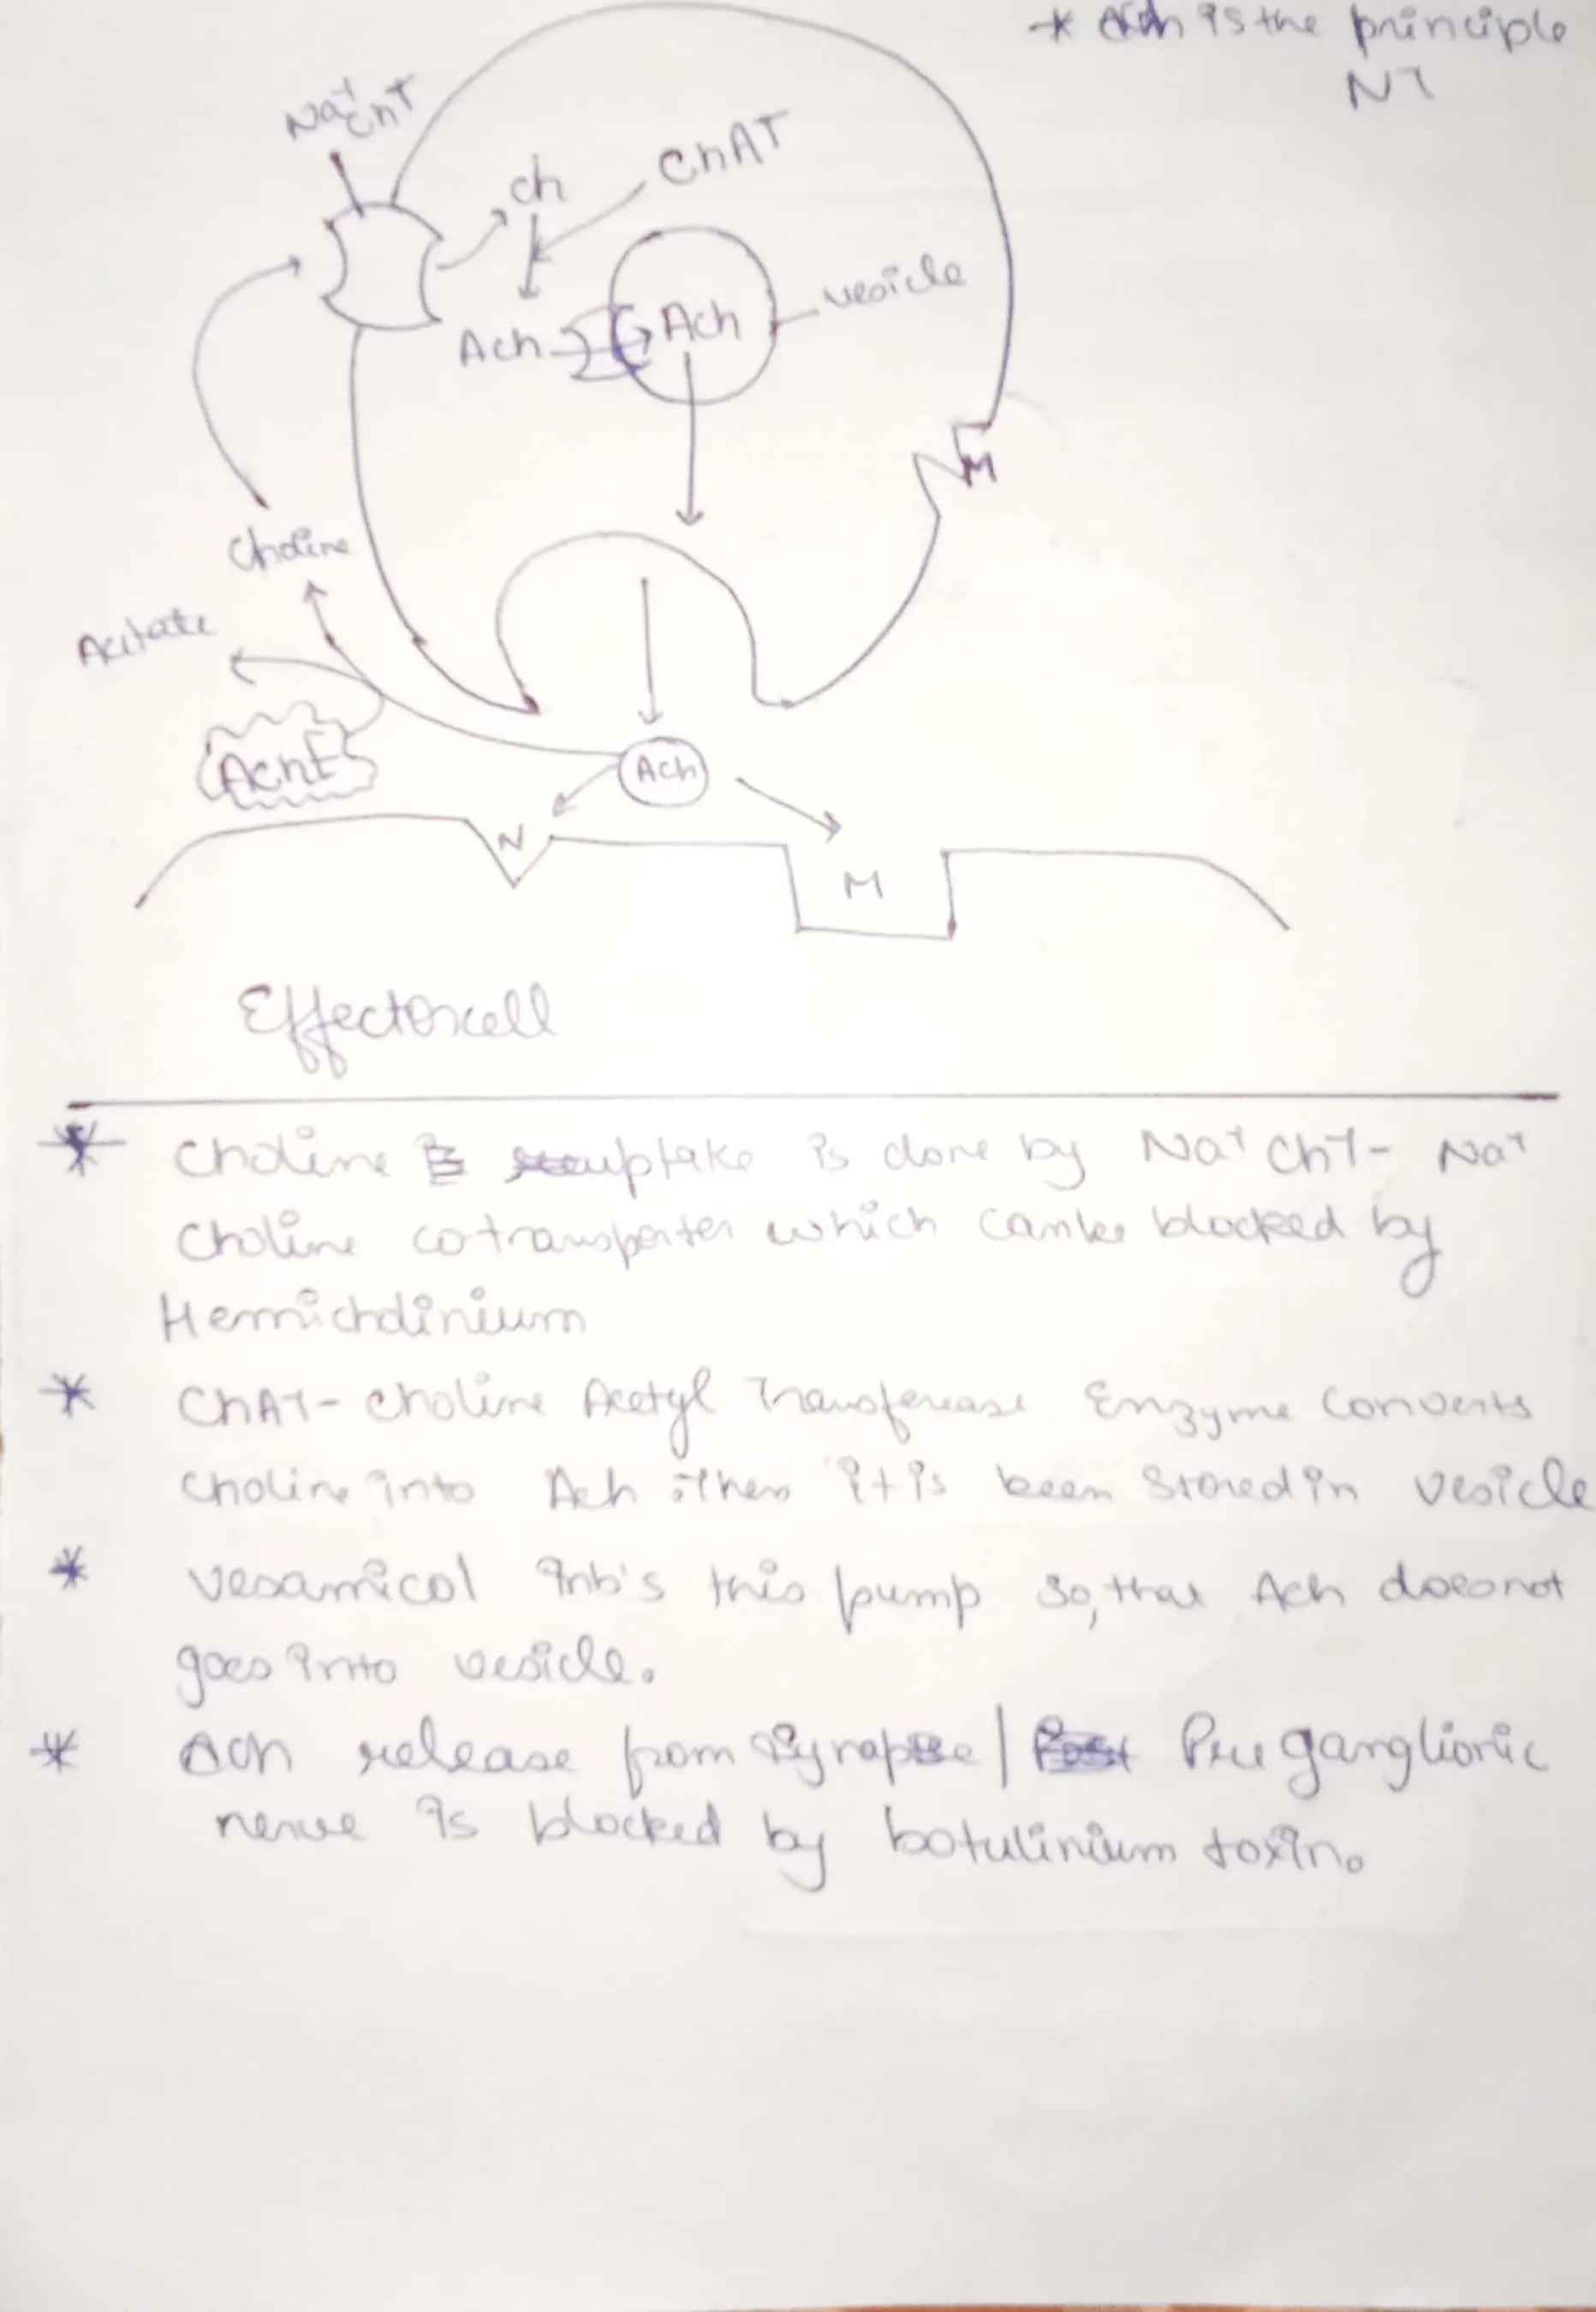 * Ach is the principle
NT
Na+ ChT
ch
ChAT
vesicle
Ach
Ach
M
Choline
Acitate
AchE
Ach
N
M
Effector cell
* Choline uptake is done by Na+ ChT - Na+
Choline cotransporter which can be blocked by
Hemicholinium
* ChAT - Choline Acetyl Transferase Enzyme converts
choline into Ach then it is been stored in vesicle
* vesamicol Inb's this pump so, that Ach does not
goes into vesicle.
* Ach release from synapse / Pre ganglionic
nerve is blocked by botulinium toxin.